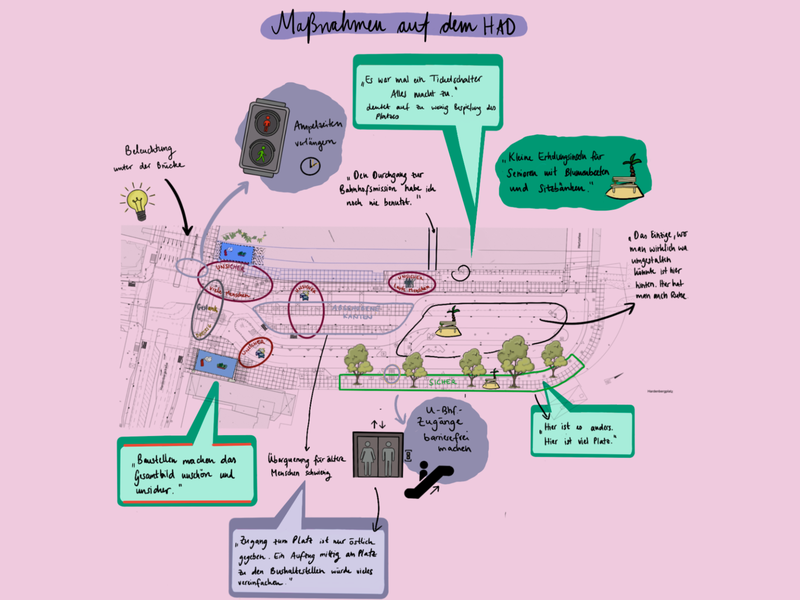 Maßnahmen auf dem HAD
„Es war mal ein Ticketschalter
Alles macht zu."
deutet auf zu wenig Bespielung des
Platzes
Ampelzeiten
verlängern
Beleuchtung
unter der Brücke
„Den Durchgang zur
Bahnhofsmission habe ich
noch nie benutzt."
„Kleine Erholungsinseln für
Senioren mit Blumenbeeten
und Sitzbänken."
„Das Einzige, wo
man wirklich was
umgestalten
könnte ist hier
hinten. Hier hat
man auch Ruhe
UNSICHER
viele Menschen
UNSICHER
UNSICHER
viele Menschen
KANTEN
UNSICHER
SICHER
Hardenbergplatz
„Baustellen machen das
Gesamtbild unschön und
unsicher."
Überquerung für ältere
Menschen schwierig
U-Bhf-
Zugänge
barrierefrei
machen
„Hier ist es anders.
Hier ist viel Platz."
„Zugang zum Platz ist nur östlich
gegeben. Ein Aufzug mittig am Platz
zu den Bushaltestellen würde vieles
vereinfachen."